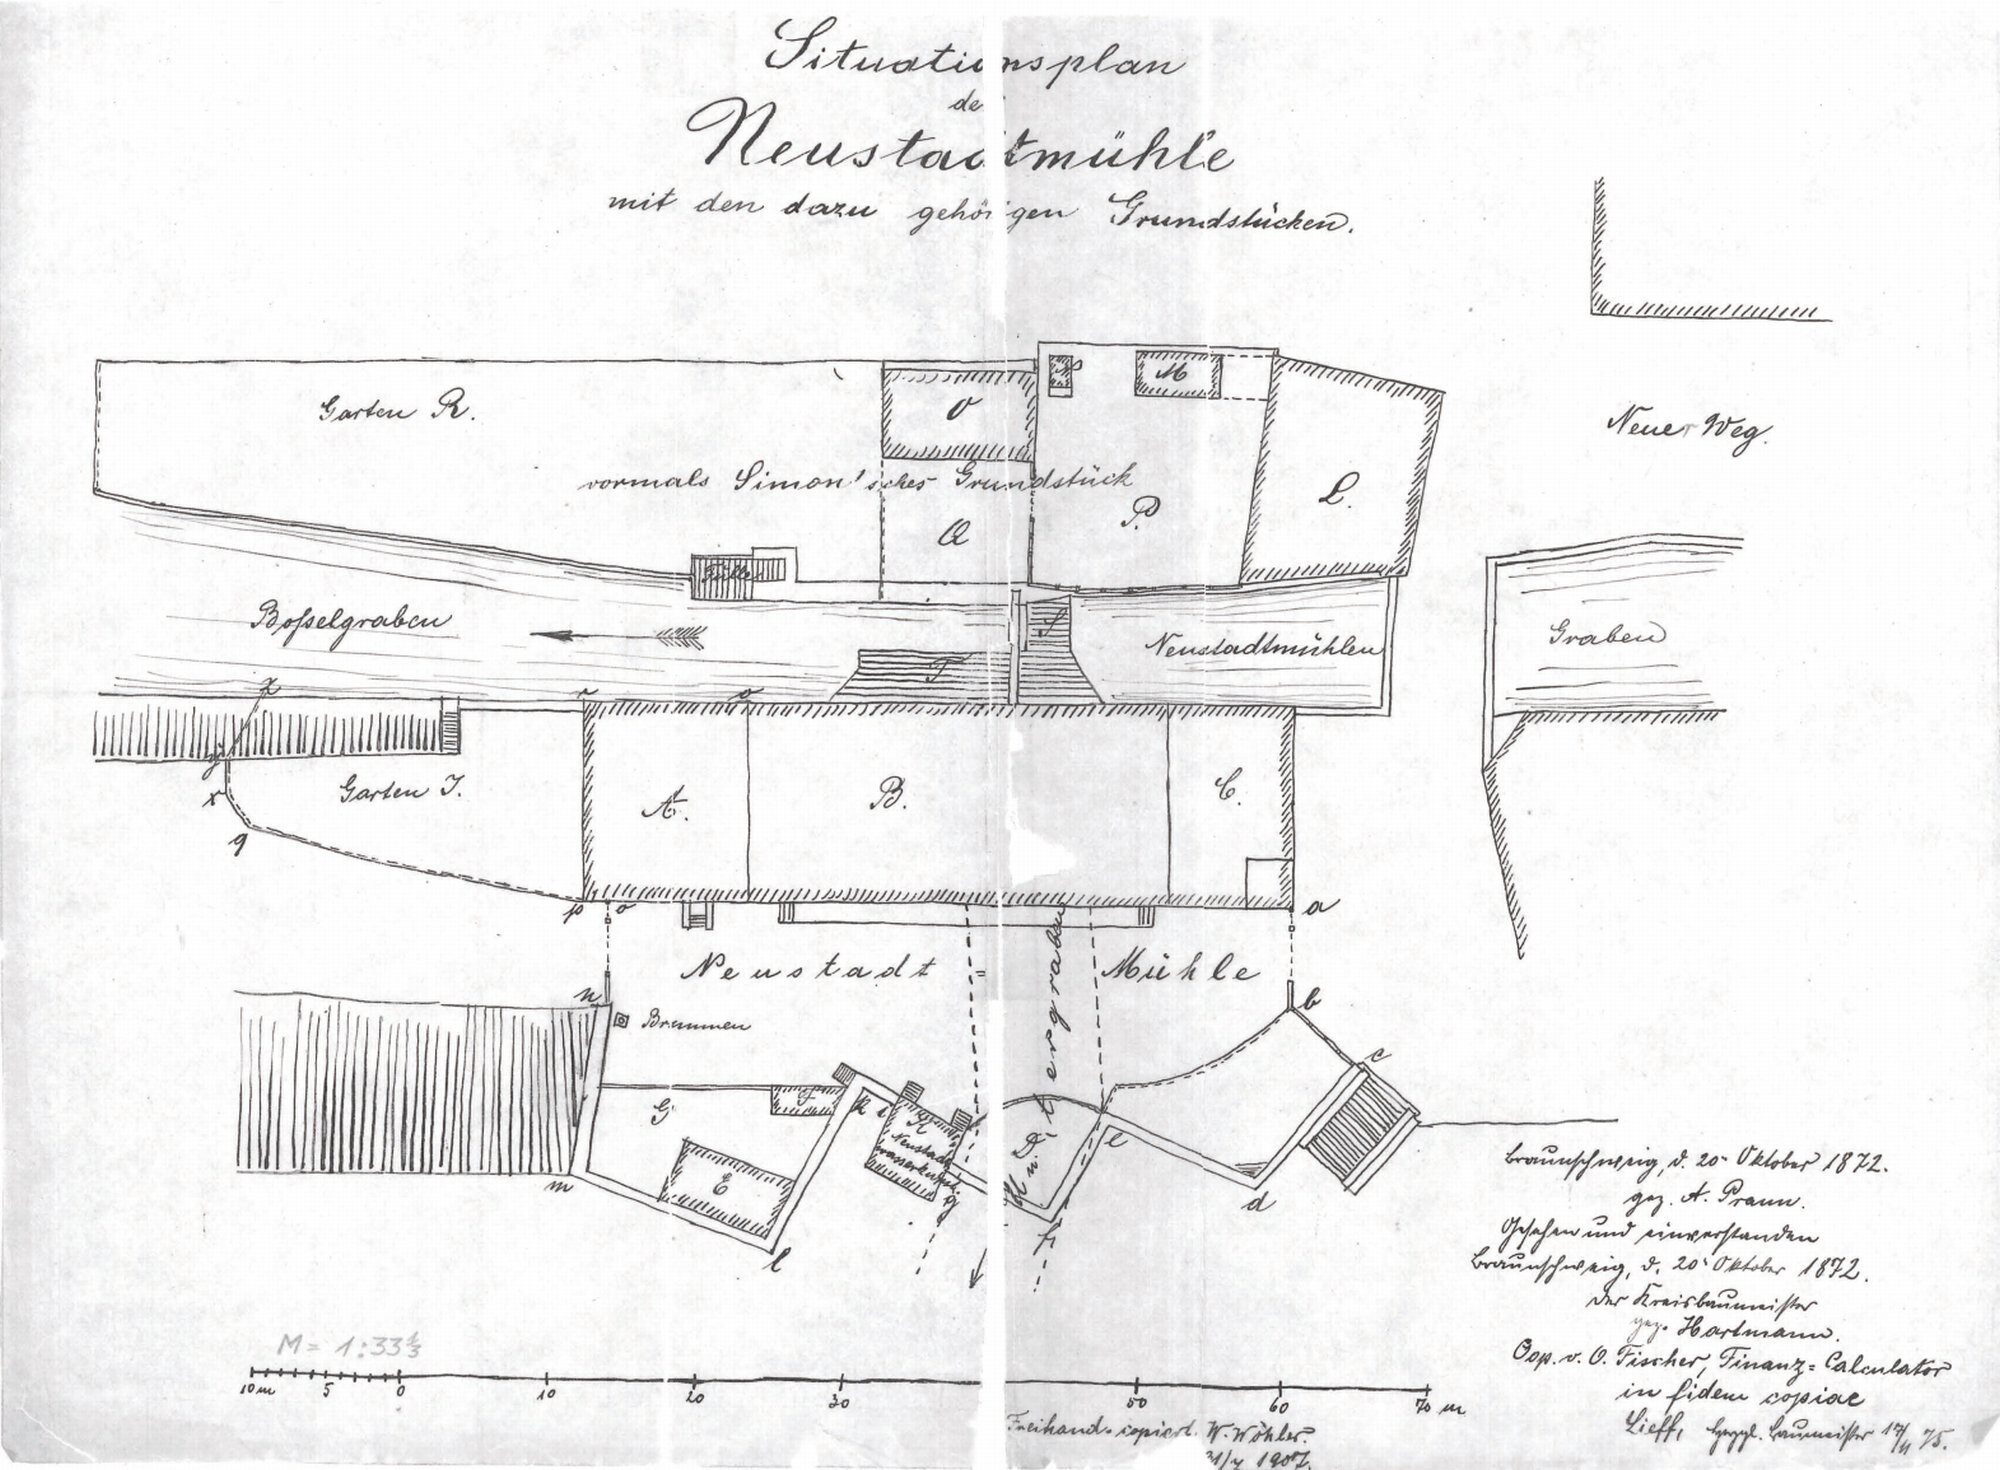 Situationsplan
de
Neustadtmühle
mit den dazu gehörigen Grundstücken.
Garten R.
O
N
M
Neuer Weg.
vormals Simon'sches Grundstück
Q
P.
L.
Bosselgraben
S
T
Neustadtmühlen
Graben
z
r
o
y
x
q
Garten J.
A.
B.
C.
p o
a
Neustadt - Mühle
n
Brunnen
b
c
G
F
k i
H
Neustadt
E
m
l
g
D.
e
f
d
Braunschweig, d. 20t Oktober 1872.
gez. A. Praun.
Gesehen und einverstanden
Braunschweig, d. 20t Oktober 1872.
der Kreisbaumeister
gez. Hartmann.
Cop. v. O. Fischer, Finanz=Calculator
in fidem copiae
Lieff, Herzgl. Baumeister 17/11 75.
M = 1:33⅓
10 m 5 0 10 20 30 50 60 70 m
Freihand copiert. W. Wöhler.
1907.